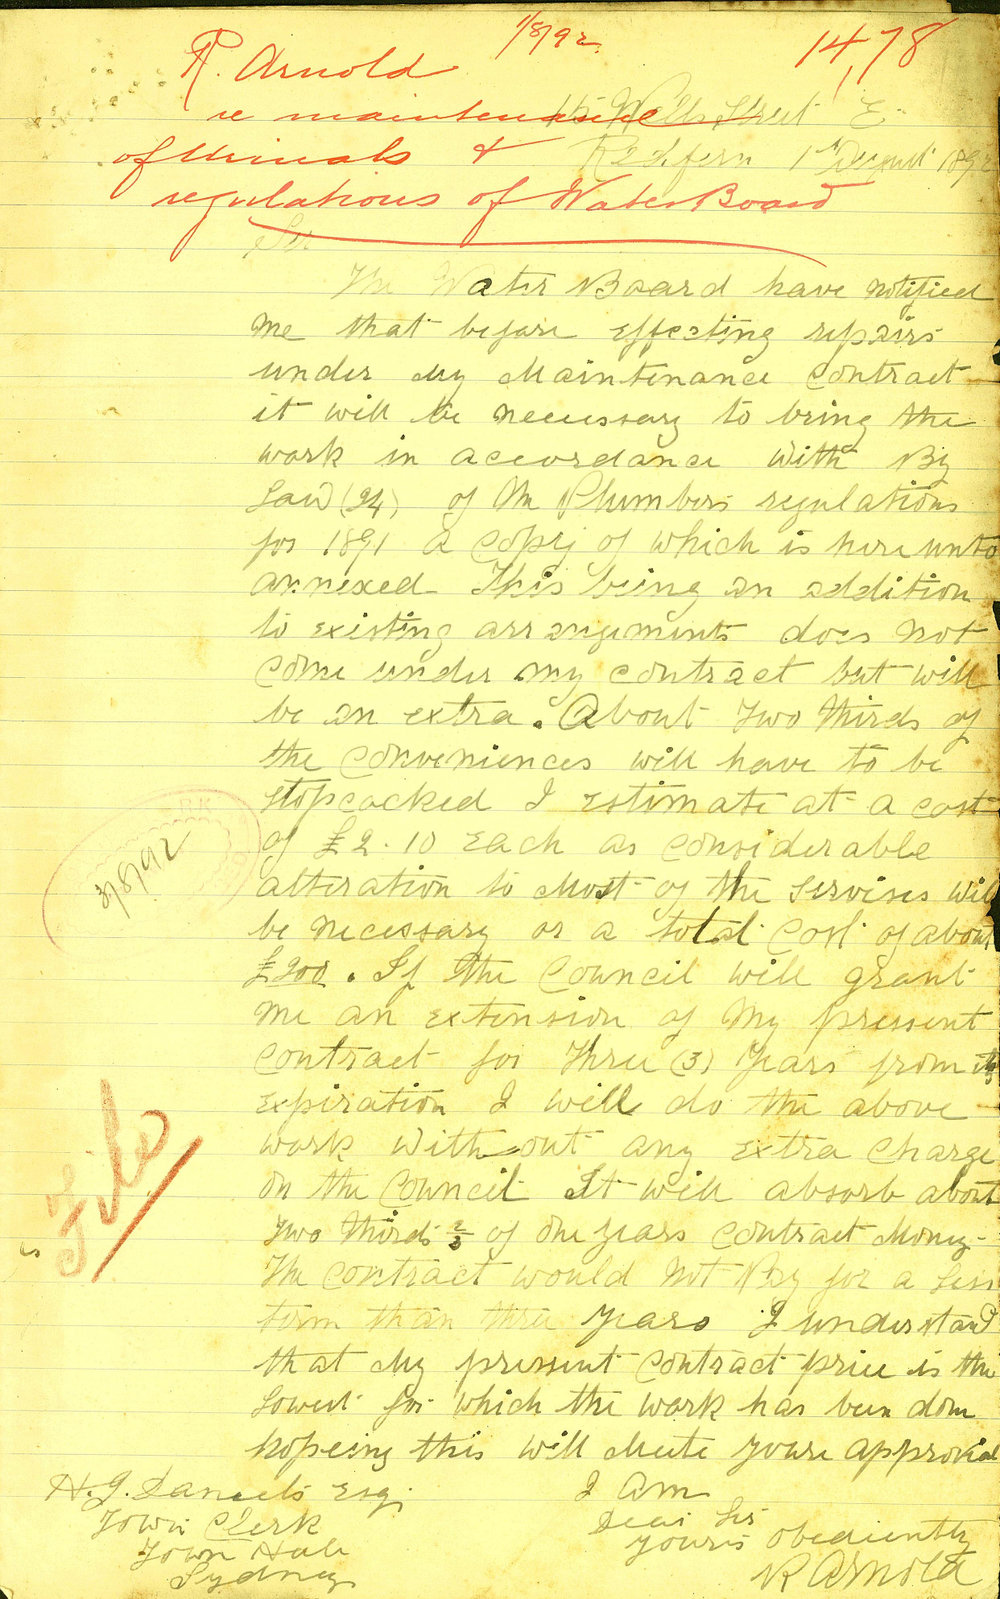 1/8/92
14,78
R. Arnold
re maintenance
of Urinals &
regulations of Water Board
15 Wells Street E.
Redfern 1st August 1892
Sir
The Water Board have notified
me that before effecting repairs
under my Maintenance contract
it will be necessary to bring the
work in accordance with By
Law (24) of the Plumbers regulations
for 1891 a copy of which is here unto
annexed This being an addition
to existing arrangements does not
come under my contract but will
be an extra. About two thirds of
the conveniences will have to be
stopcocked I estimate at a cost
of £2.10 each as considerable
alteration to most of the servises will
be necessary or a total cost of about
£200. If the Council will grant
me an extension of my pressent
contract for three (3) years from its
expiration I will do the above
work with-out any extra charge
on the Council It will absorb about
two thirds 2/3 of one years contract money-
The contract would not Pay for a less
term than three years I understand
that my pressent contract price is the
lowest for which the work has been done
hopeing this will meete youre approvial
I am
Dear Sir
yours obediently
R Arnold
H. J. Daniels Esq.
Town Clerk
Town Hall
Sydney
3/8/92
File